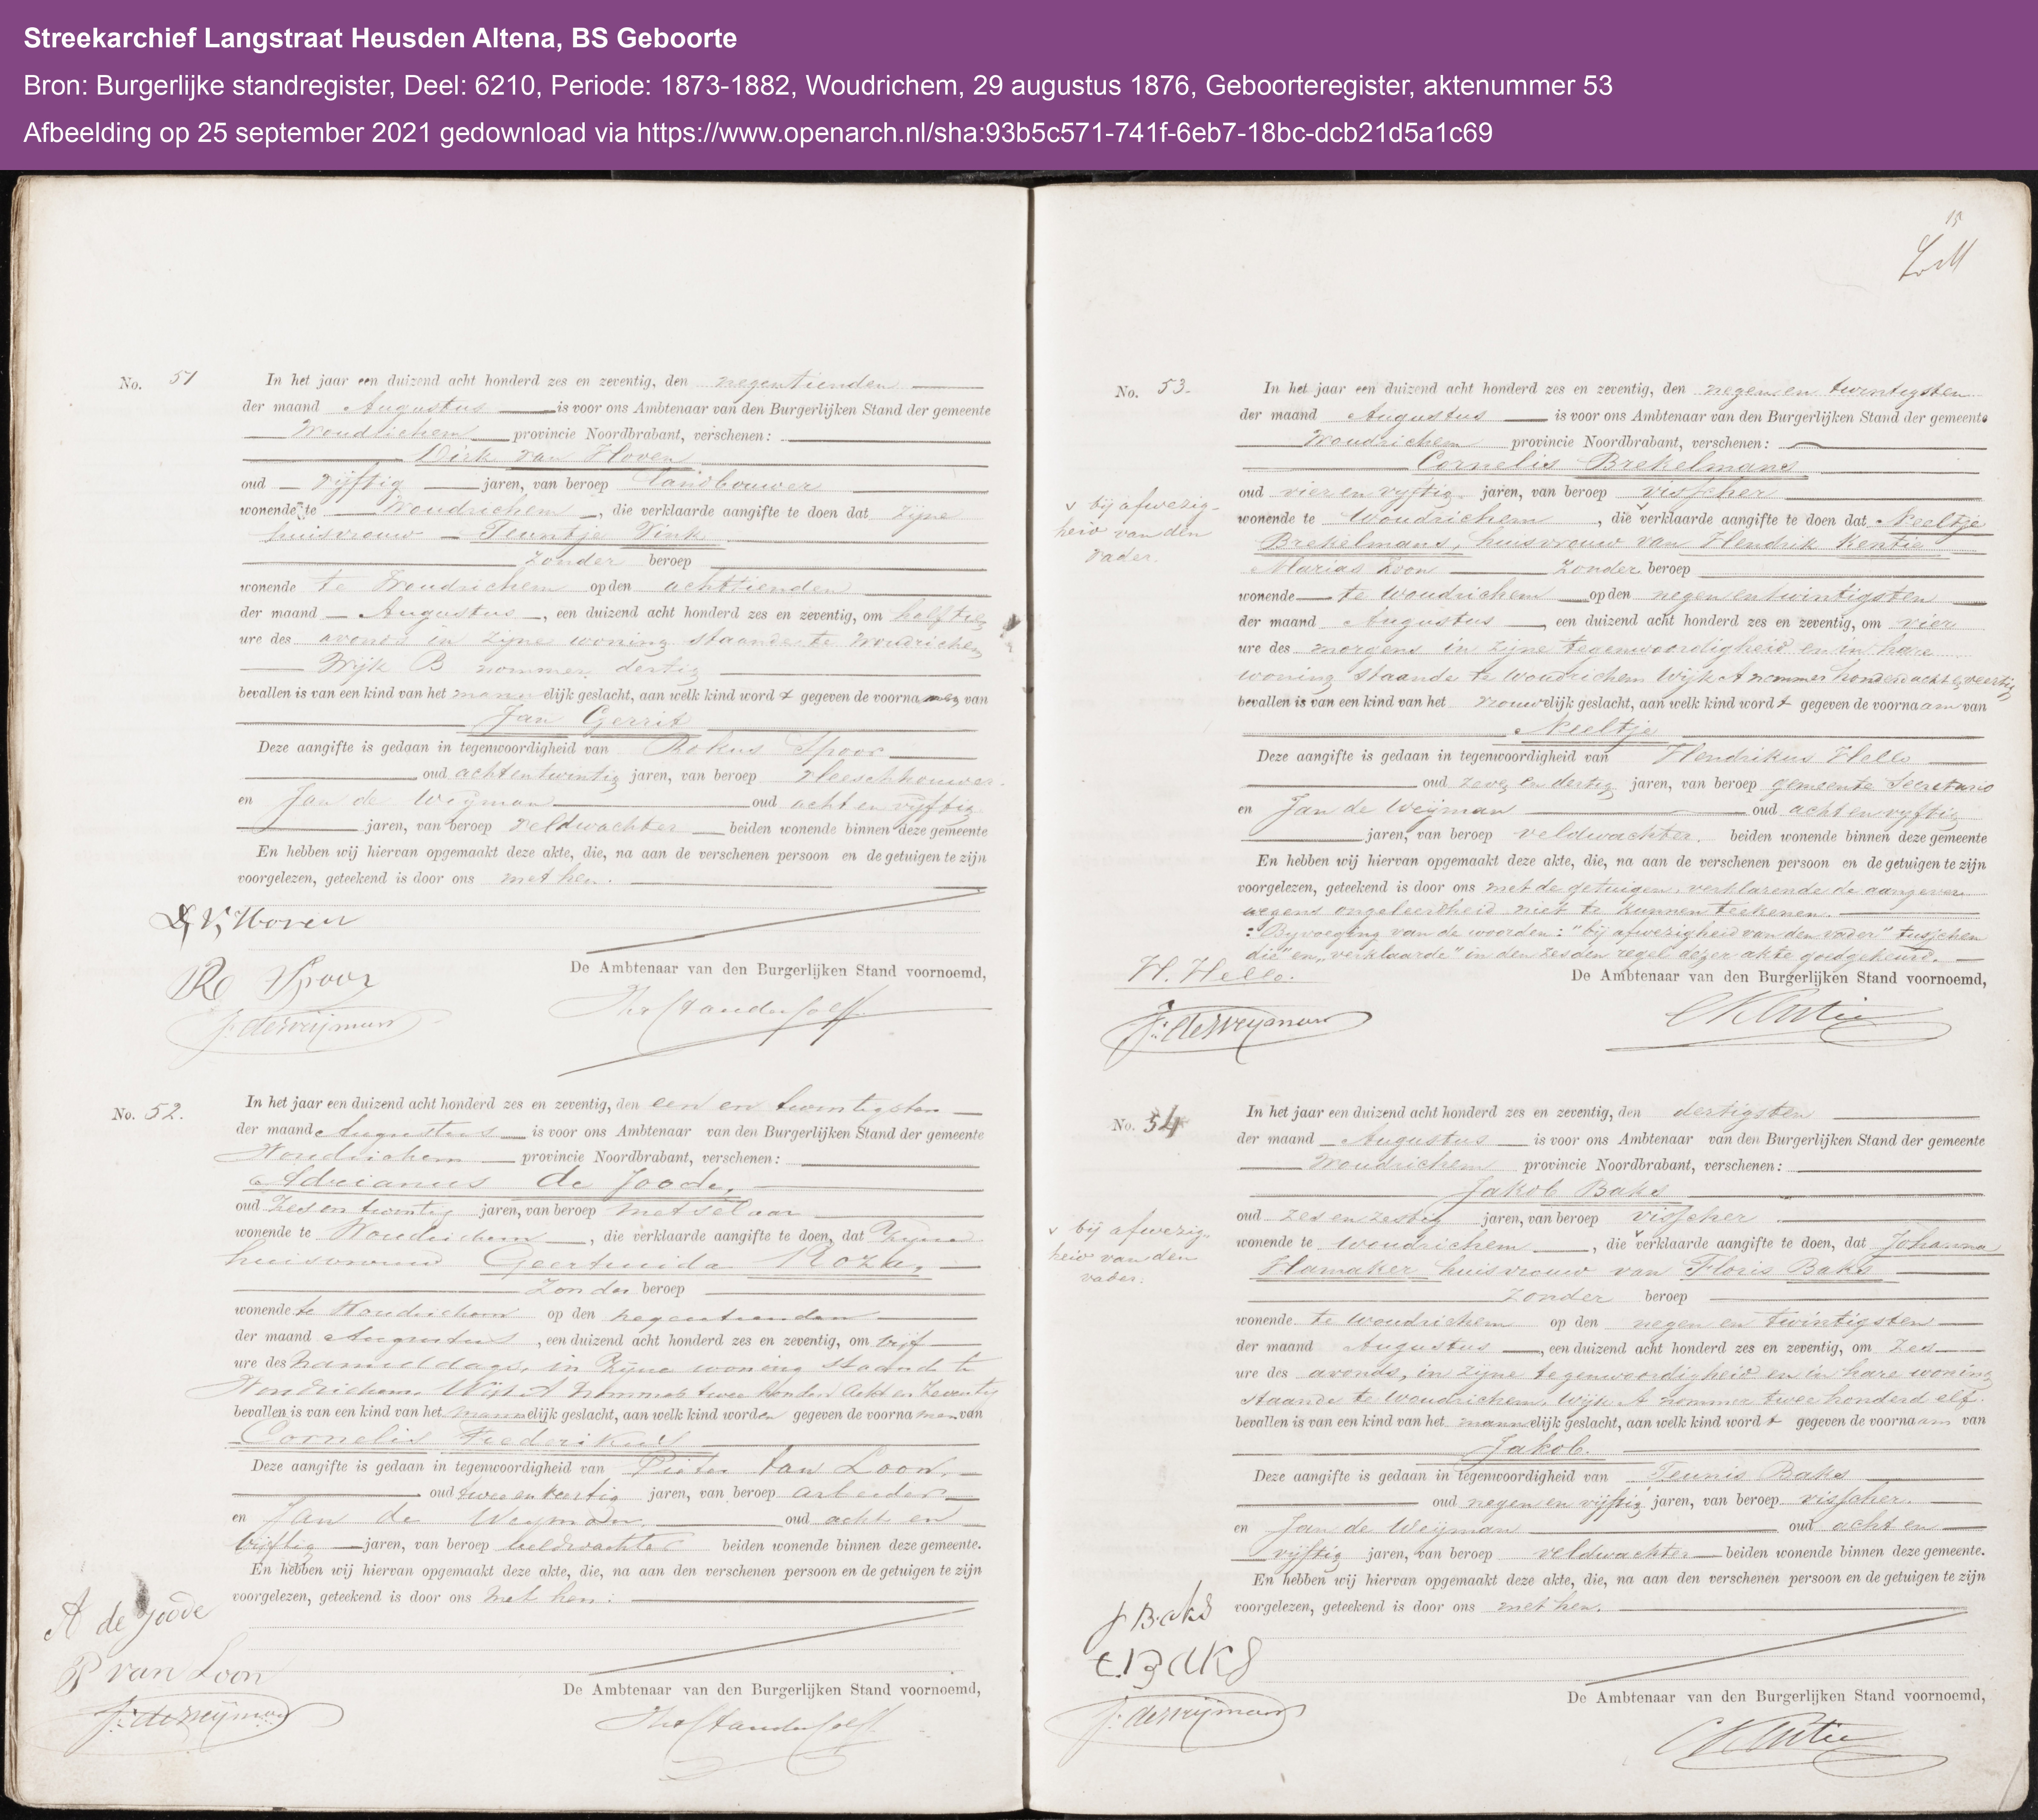 Streekarchief Langstraat Heusden Altena, BS Geboorte
Bron: Burgerlijke standregister, Deel: 6210, Periode: 1873-1882, Woudrichem, 29 augustus 1876, Geboorteregister, aktenummer 53
Afbeelding op 25 september 2021 gedownload via https://www.openarch.nl/sha:93b5c571-741f-6eb7-18bc-dcb21d5a1c69
No. 51
In het jaar een duizend acht honderd zes en zeventig, den negentienden
der maand Augustus is voor ons Ambtenaar van den Burgerlijken Stand der gemeente
Woudrichem provincie Noordbrabant, verschenen:
Dirk van Hoven
oud vijftig jaren, van beroep landbouwer
wonende te Woudrichem, die verklaarde aangifte te doen dat zijne
huisvrouw Teuntje Vink
zonder beroep
wonende te Woudrichem op den achttienden
der maand Augustus, een duizend acht honderd zes en zeventig, om half tien
ure des avonds in zijne woning staande te Woudrichem
Wijk B nommer dertig
bevallen is van een kind van het mannelijk geslacht, aan welk kind wordt gegeven de voornamen van
Jan Gerrit
Deze aangifte is gedaan in tegenwoordigheid van Rokus Spoor
oud achtentwintig jaren, van beroep vleeschhouwer
en Jan de Weijman oud acht en vijftig
jaren, van beroep veldwachter beiden wonende binnen deze gemeente
En hebben wij hiervan opgemaakt deze akte, die, na aan de verschenen persoon en de getuigen te zijn
voorgelezen, geteekend is door ons met hen.
D, V, Hoven
R Spoor
De Ambtenaar van den Burgerlijken Stand voornoemd,
J: de Weijman
No. 52.
In het jaar een duizend acht honderd zes en zeventig, den een en twintigsten
der maand Augustus is voor ons Ambtenaar van den Burgerlijken Stand der gemeente
Woudrichem provincie Noordbrabant, verschenen:
Adrianus de Joode,
oud zes en twintig jaren, van beroep metselaar
wonende te Woudrichem, die verklaarde aangifte te doen, dat zijne
huisvrouw Geertruida Roza,
Zonder beroep
wonende te Woudrichem op den negentienden
der maand Augustus, een duizend acht honderd zes en zeventig, om vijf
ure des namiddags, in zijne woning staande te
Woudrichem Wijk A nommer twee honderd acht en zeventig
bevallen is van een kind van het mannelijk geslacht, aan welk kind worden gegeven de voornamen van
Cornelis Frederikus
Deze aangifte is gedaan in tegenwoordigheid van Pieter van Loon,
oud twee en veertig jaren, van beroep arbeider
en Jan de Weijman oud acht en
vijftig jaren, van beroep veldwachter beiden wonende binnen deze gemeente.
En hebben wij hiervan opgemaakt deze akte, die, na aan den verschenen persoon en de getuigen te zijn
voorgelezen, geteekend is door ons met hen:
A de Joode
P van Loon
De Ambtenaar van den Burgerlijken Stand voornoemd,
J: de Weijman
15
No. 53.
In het jaar een duizend acht honderd zes en zeventig, den negen en twintigsten
der maand Augustus is voor ons Ambtenaar van den Burgerlijken Stand der gemeente
Woudrichem provincie Noordbrabant, verschenen:
Cornelis Brekelmans
oud vier en vyftig jaren, van beroep visscher
v bij afwezig-
heid van den
vader.
wonende te Woudrichem, die v verklaarde aangifte te doen dat Neeltje
Brekelmans, huisvrouw van Hendrik Kentie
Marias Zoon Zonder beroep
wonende te Woudrichem op den negenentwintigsten
der maand Augustus, een duizend acht honderd zes en zeventig, om vier
ure des morgens in zijne tegenwoordigheid en in hare
woning staande te Woudrichem Wijk A nommer honderd acht en veertig
bevallen is van een kind van het vrouwelijk geslacht, aan welk kind wordt gegeven de voornaam van
Neeltje
Deze aangifte is gedaan in tegenwoordigheid van Hendrikus Hello
oud zeven en dertig jaren, van beroep gemeente Secretaris
en Jan de Weijman oud acht en vyftig
jaren, van beroep veldwachter. beiden wonende binnen deze gemeente
En hebben wij hiervan opgemaakt deze akte, die, na aan de verschenen persoon en de getuigen te zijn
voorgelezen, geteekend is door ons met de getuigen, verklarende de aangever
wegens ongeleerdheid niet te kunnen teekenen.
: Byvoeging van de woorden: "bij afwezigheid van den vader" tusschen
"die" en "verklaarde" in den zesden regel dezer akte goedgekeurd.
H. Hello.
De Ambtenaar van den Burgerlijken Stand voornoemd,
J: de Weijman
CKentie
No. 54
In het jaar een duizend acht honderd zes en zeventig, den dertigsten
der maand Augustus is voor ons Ambtenaar van den Burgerlijken Stand der gemeente
Woudrichem provincie Noordbrabant, verschenen:
Jakob Baks
oud zes en zestig jaren, van beroep visscher.
v bij afwezig-
heid van den
vader.
wonende te Woudrichem, die v verklaarde aangifte te doen, dat Johanna
Hamaker huisvrouw van Floris Baks
zonder beroep
wonende te Woudrichem op den negen en twintigsten
der maand Augustus, een duizend acht honderd zes en zeventig, om zes
ure des avonds, in zijne tegenwoordigheid en in hare woning
staande te Woudrichem, Wijk A nommer twee honderd elf.
bevallen is van een kind van het mannelijk geslacht, aan welk kind wordt gegeven de voornaam van
Jakob.
Deze aangifte is gedaan in tegenwoordigheid van Teunis Baks
oud negen en vijftig jaren, van beroep visscher.
en Jan de Weijman oud acht en
vijftig jaren, van beroep veldwachter beiden wonende binnen deze gemeente.
En hebben wij hiervan opgemaakt deze akte, die, na aan den verschenen persoon en de getuigen te zijn
voorgelezen, geteekend is door ons met hen.
J Baks
t. BAKS
De Ambtenaar van den Burgerlijken Stand voornoemd,
J: de Weijman
CKentie